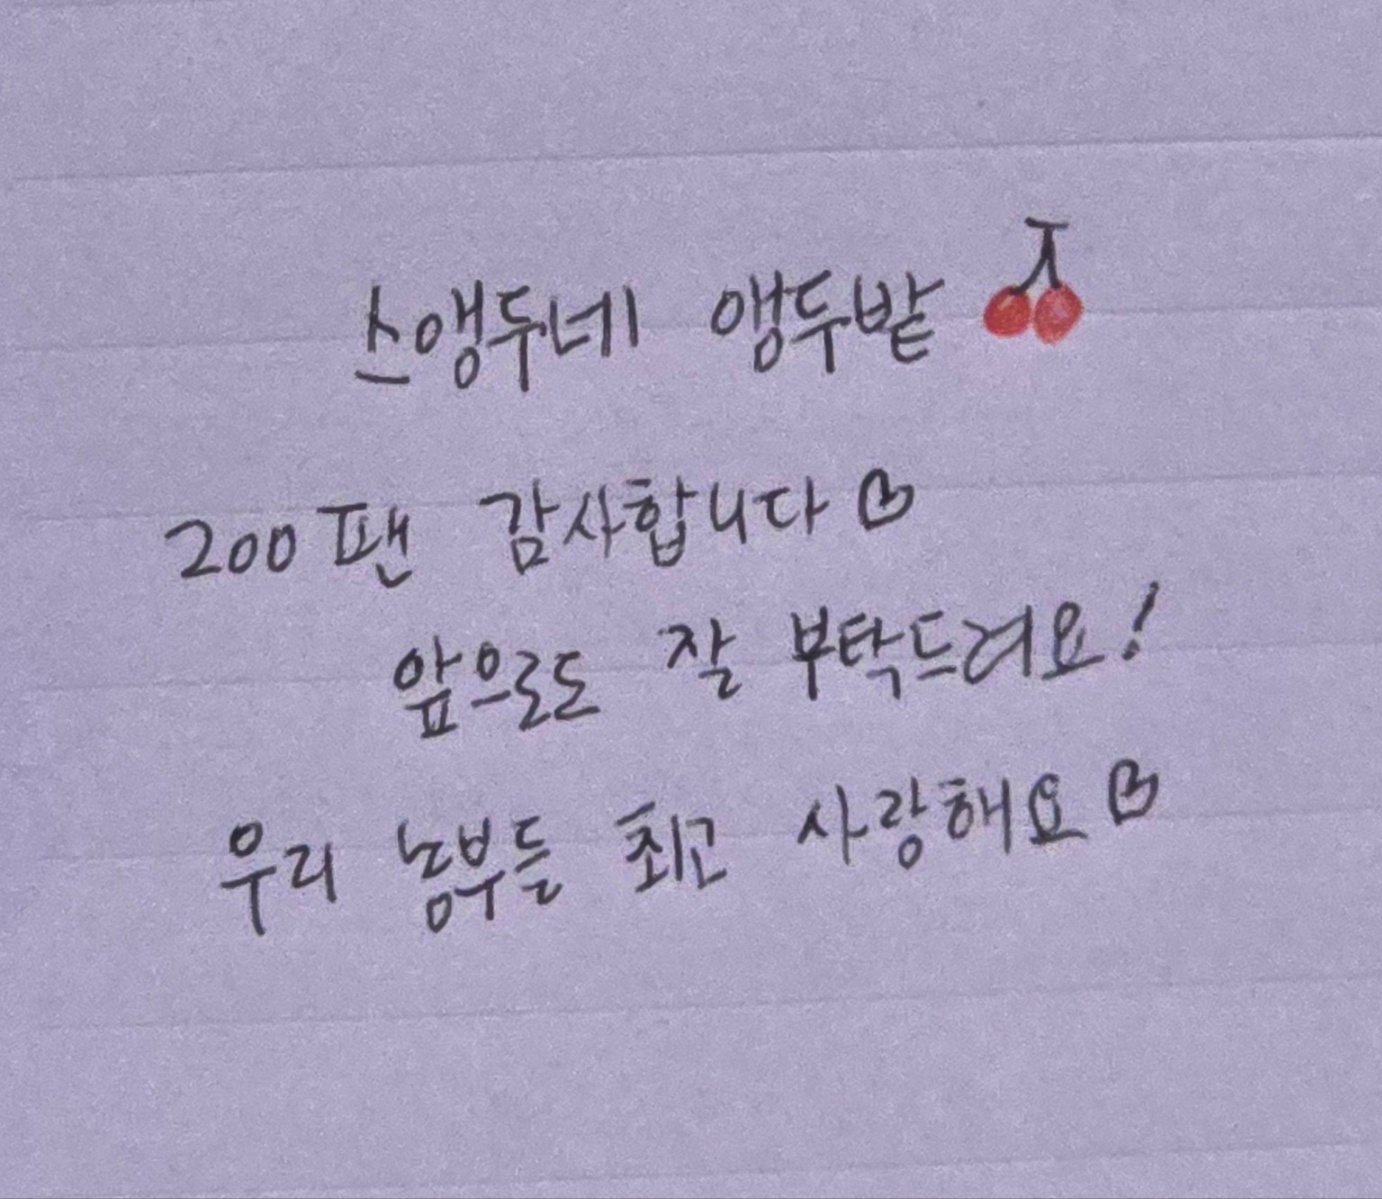 스앵두네 앵두밭
200팬 감사합니다♡
앞으로도 잘 부탁드려요!
우리 농부들 최고 사랑해요♡